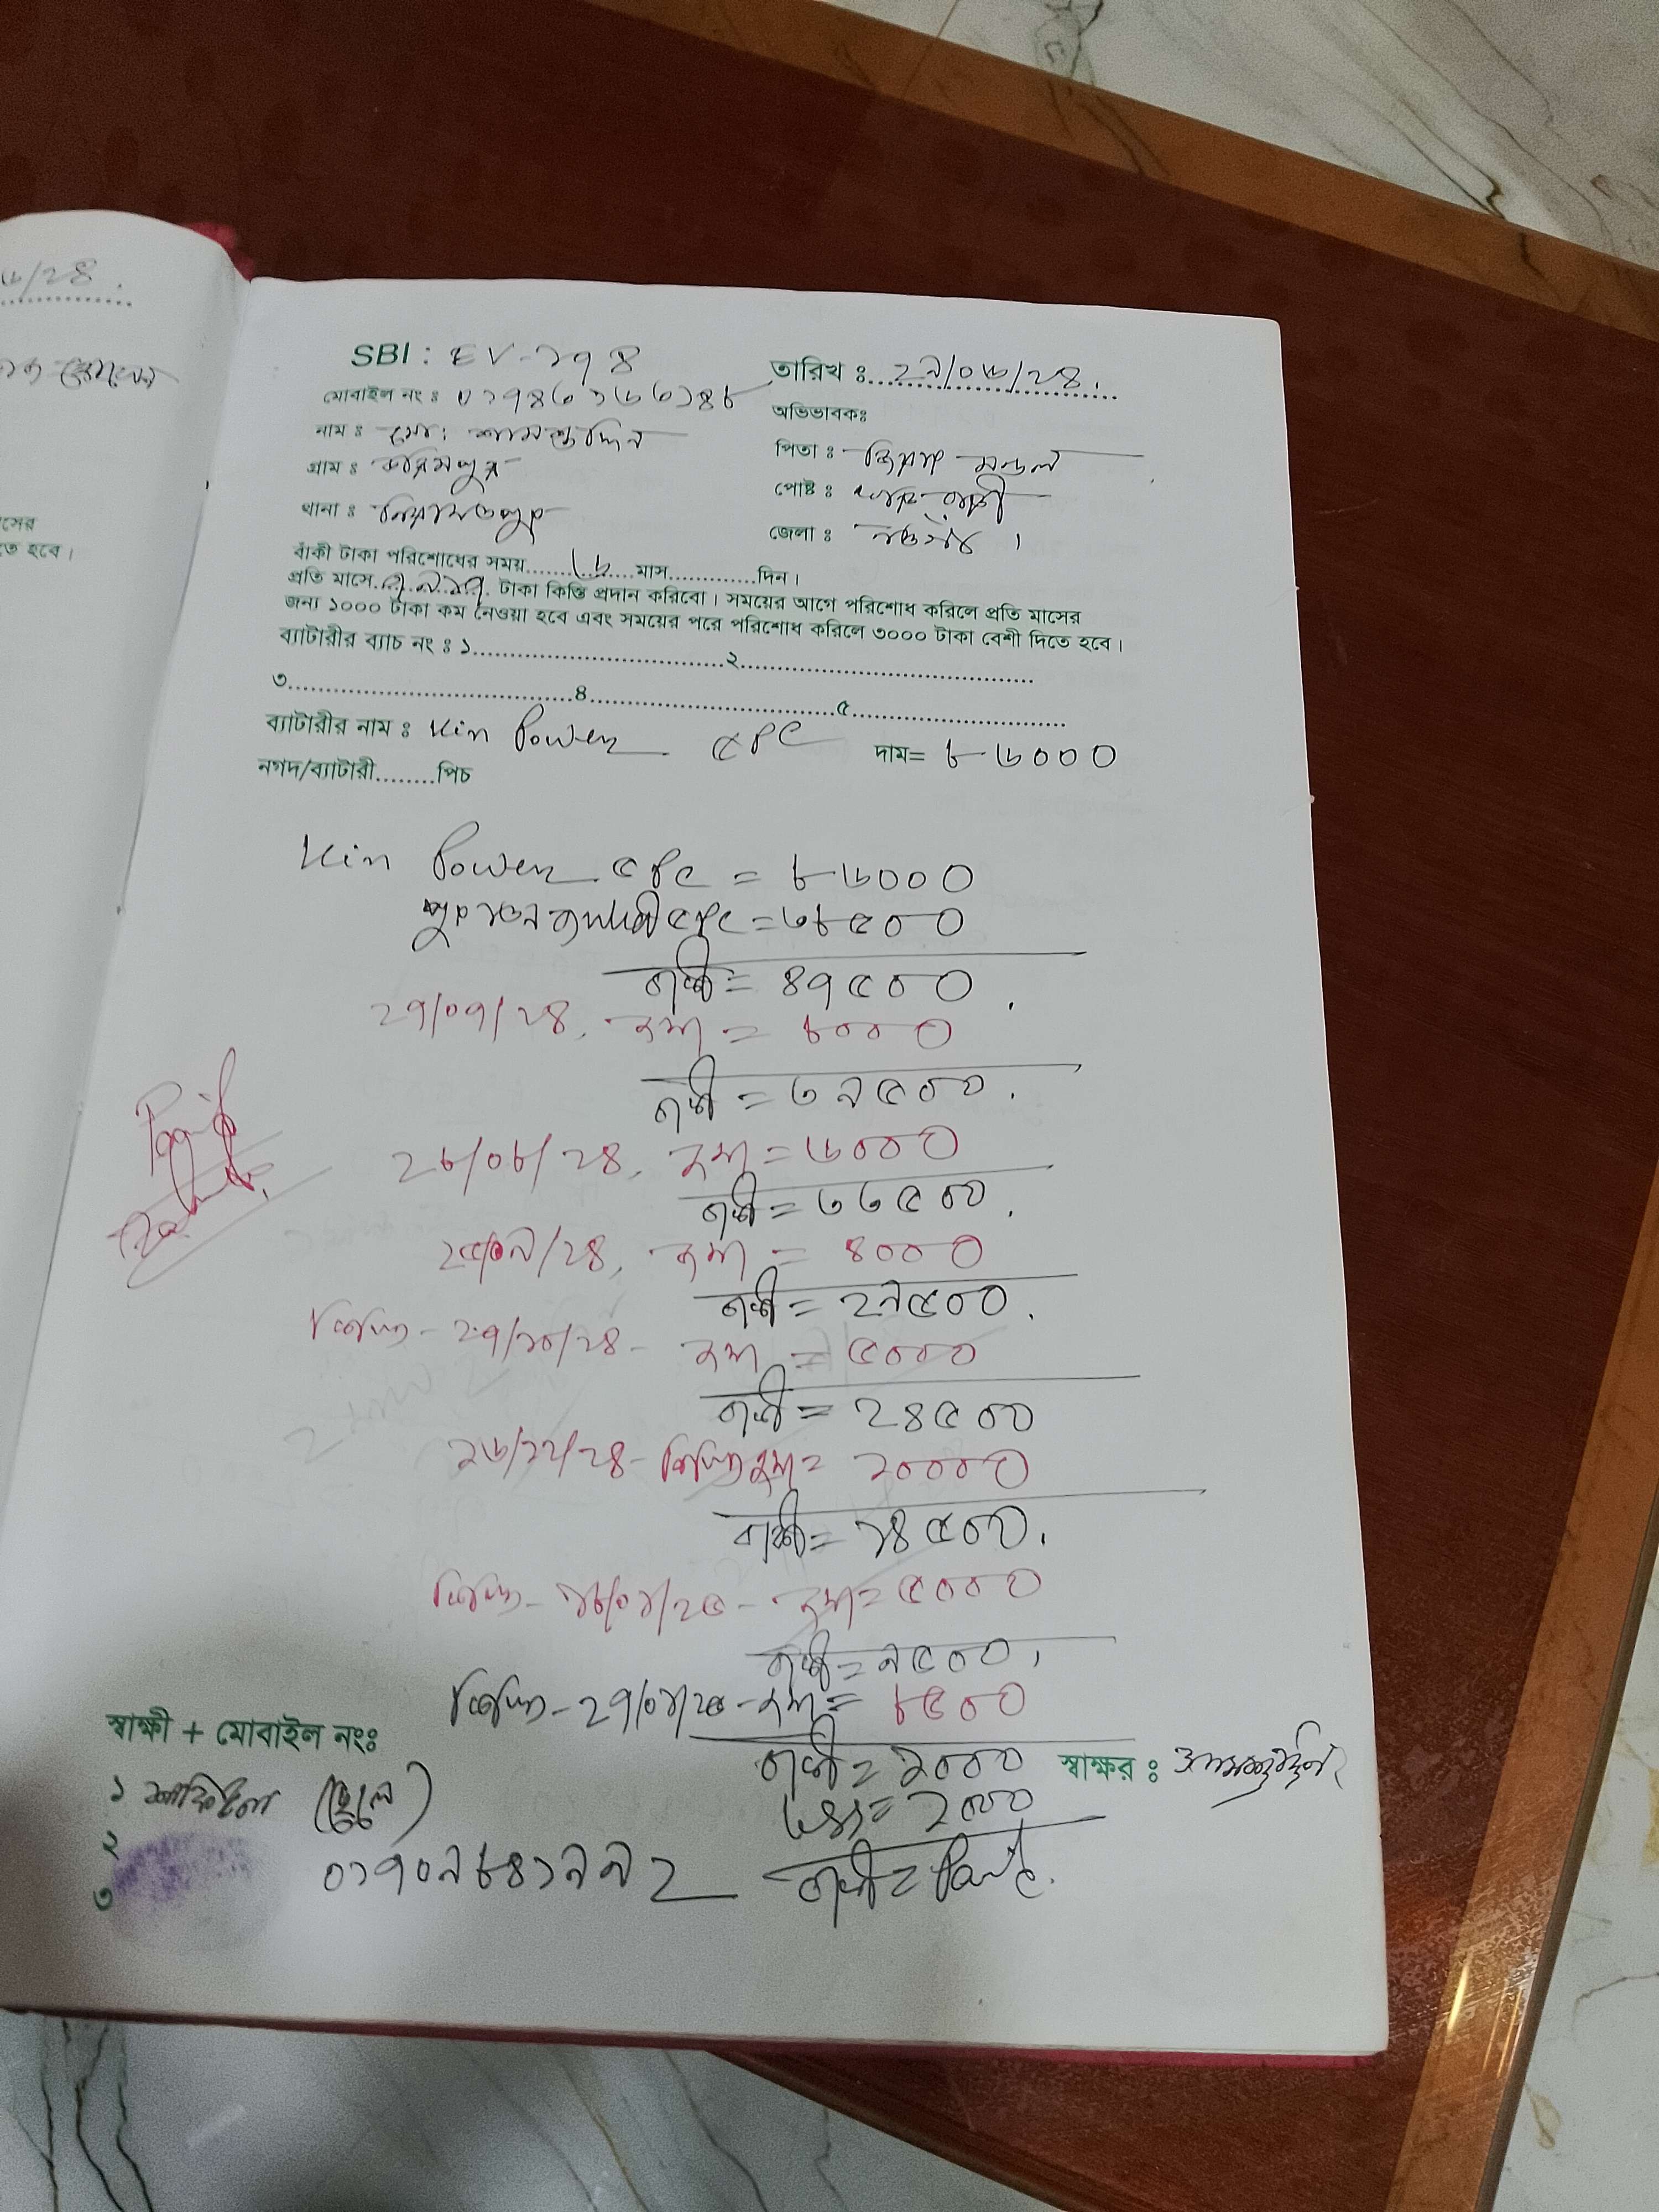 ৬/২৪.
SBI : EV-১৭৪
তারিখ ঃ ২৯/০৬/২৪.
মোবাইল নং ঃ ০১৭৪৩১৬৩১৪৮
অভিভাবকঃ
নাম ঃ মোঃ শামসুদ্দিন
পিতা ঃ মন্ডল
গ্রাম ঃ করিমপুর
পোষ্ট ঃ
থানা ঃ নিয়ামতপুর
জেলা ঃ নওগাঁ।
মাসের
তে হবে।
বাঁকী টাকা পরিশোধের সময়......৬......মাস.............দিন।
প্রতি মাসে..৭৯১৭.. টাকা কিস্তি প্রদান করিবো। সময়ের আগে পরিশোধ করিলে প্রতি মাসের
জন্য ১০০০ টাকা কম নেওয়া হবে এবং সময়ের পরে পরিশোধ করিলে ৩০০০ টাকা বেশী দিতে হবে।
ব্যাটারীর ব্যাচ নং ঃ ১...............২...............
৩...............৪...............৫...............
ব্যাটারীর নাম ঃ Kin Power ৫Pc দাম= ৮৬০০০
নগদ/ব্যাটারী........পিচ
Kin Power ৫Pc = ৮৬০০০
পুরাতন ব্যাটারী ৫Pc = ৩৮৫০০
বাকী = ৪৭৫০০.
২৭/০৭/২৪, জমা = ৮০০০
বাকী = ৩৯৫০০.
২৮/০৮/২৪, জমা = ৬০০০
বাকী = ৩৩৫০০.
Paid
২৫/০৯/২৪, জমা = ৪০০০
বাকী = ২৯৫০০.
বিকাশ - ২৭/১০/২৪ - জমা = ৫০০০
বাকী = ২৪৫০০
২৬/১২/২৪ - বিকাশ জমা = ১০০০০
বাকী = ১৪৫০০.
বিকাশ - ১৮/০১/২৫ - জমা = ৫০০০
বাকী = ৯৫০০.
বিকাশ - ২৭/০১/২৫ - জমা = ৮৫০০
স্বাক্ষী + মোবাইল নংঃ
বাকী = ১০০০ স্বাক্ষর ঃ শামসুদ্দিন
১ (ছেলে)
= ১০০০
২
৩ ০১৭০৯৮৪১৯৯২
বাকী = Paid.